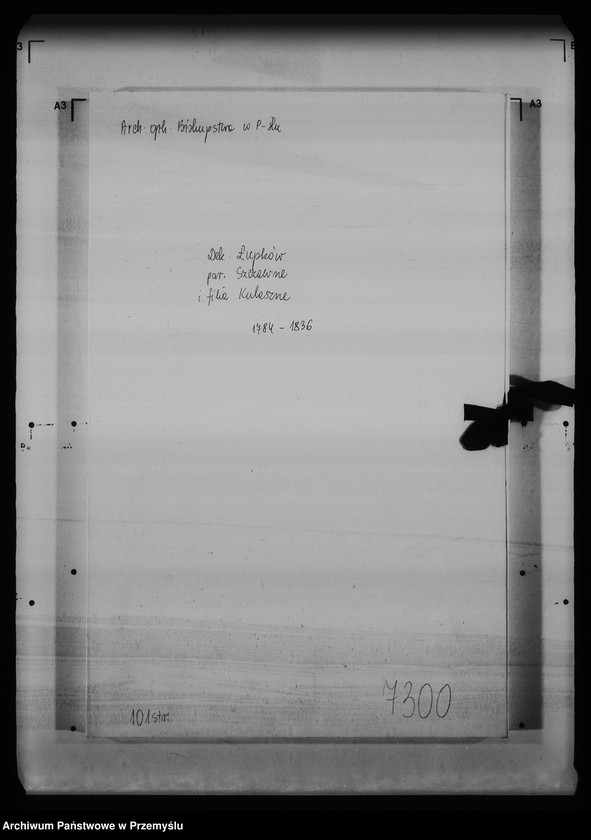 A3
A3
Arch. gr.k. Biskupstwa w P-ślu
Dek. Łupków
par. Szczawne
i filia Kulaszne
1784 - 1836
101 str.
7300
Archiwum Państwowe w Przemyślu